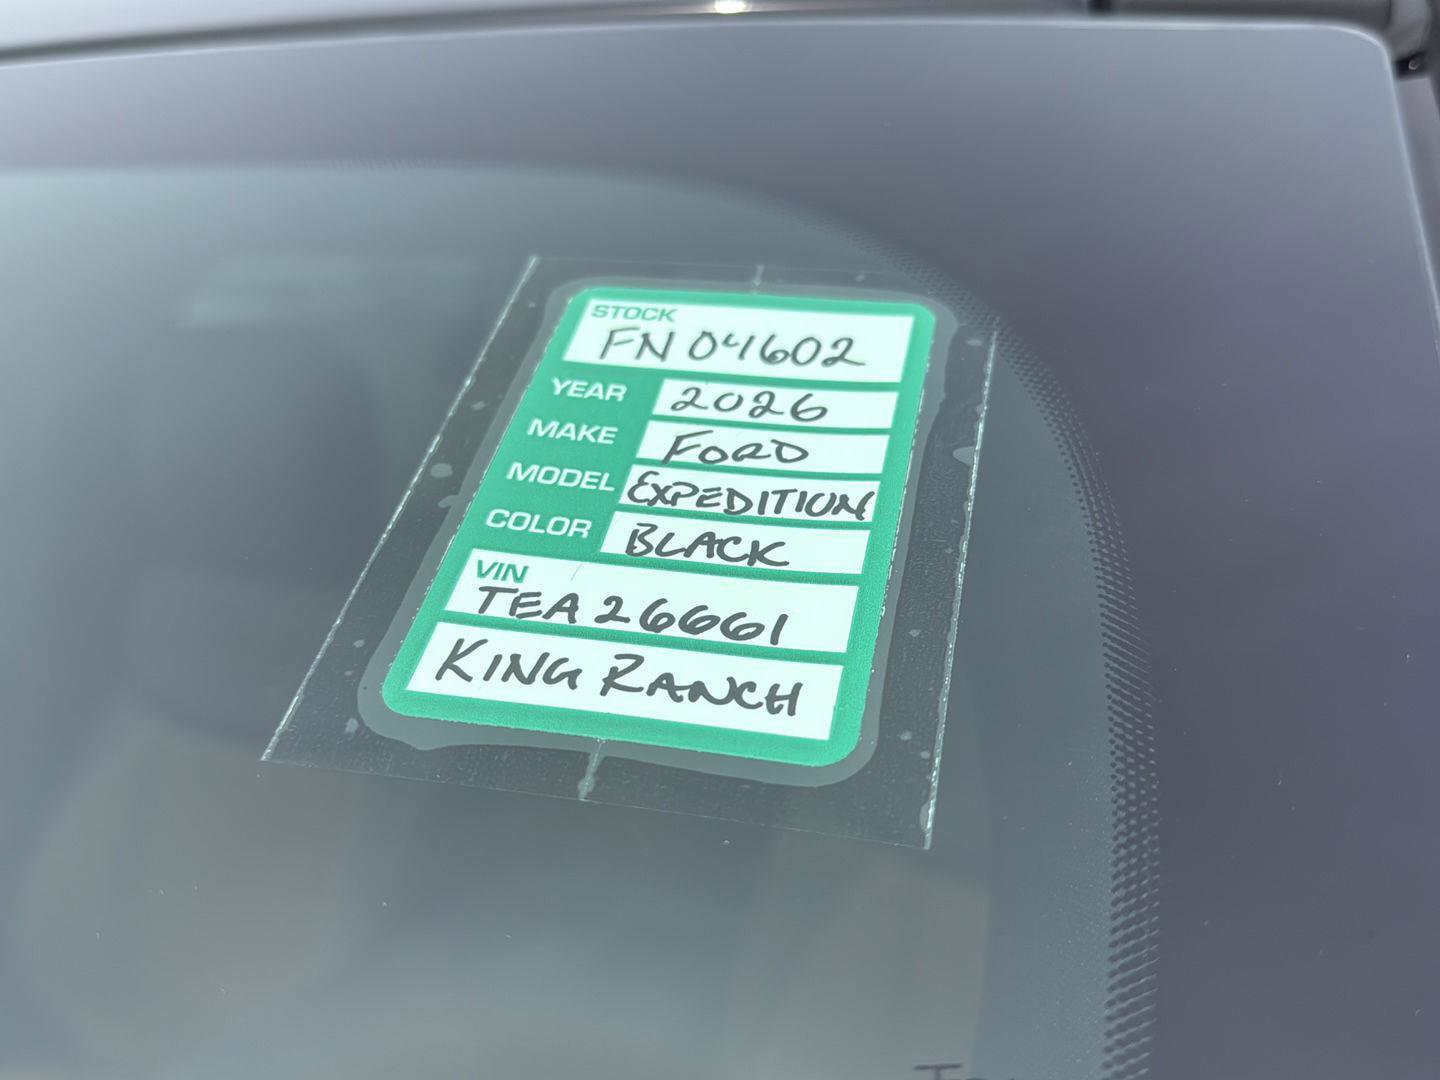 STOCK
FN 04602
YEAR 2026
MAKE FORD
MODEL EXPEDITION
COLOR BLACK
VIN
TEA26661
KING RANCH